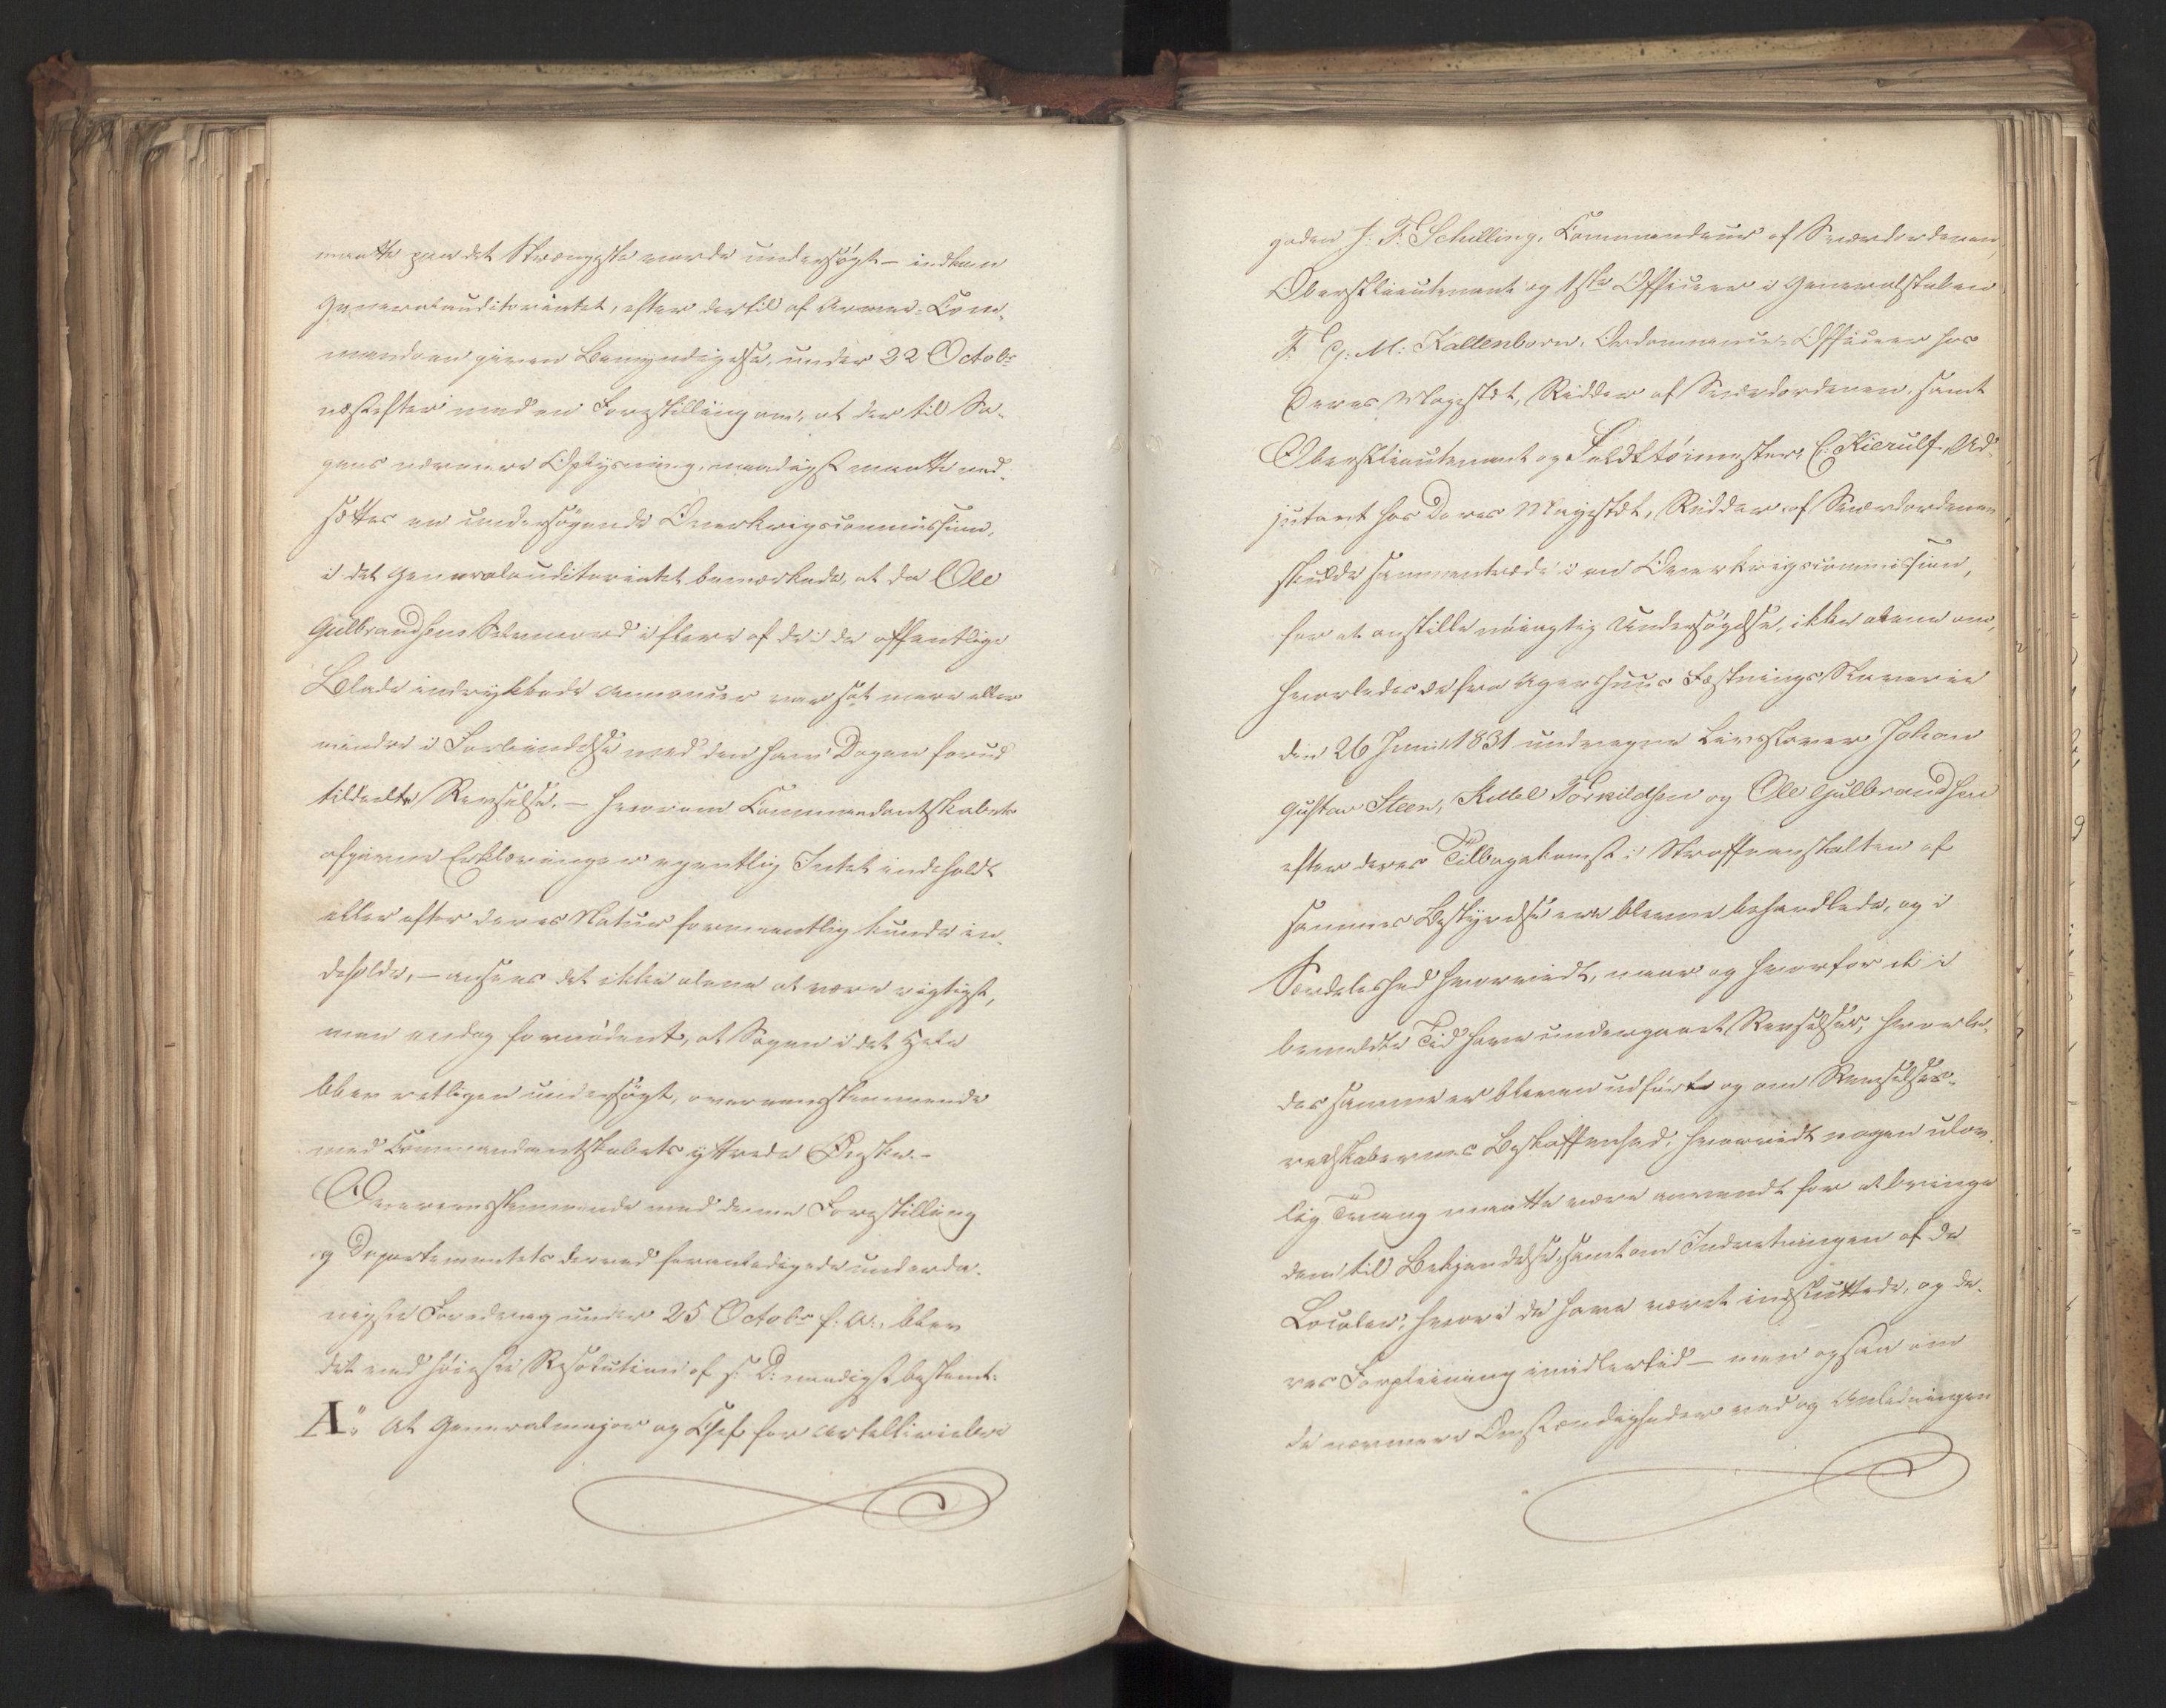 maatte paa det Strængeste vorde undersøgt – indkom
Generalauditoriatet, efter dertil af Armee-Com-
mandoen given Bemyndigelse, under 22 Octobr
næstefter med en Forestilling om, at der til Sa-
gens nærmere Oplysning, naadigst maatte ned-
sættes en undersøgende Overkrigscommission,
i det Generalauditoriatet bemærkede, at da Ole
Gulbrandsens Selvmord i flere af de i de offentlige
Blade indrykkede Annoncer var sat mere eller
mindre i Forbindelse med den ham Dagen forud
tildeelte Revselse, – hvorom Commandantskabets
afgivne Erklæringer egentlig Intet indeholdt
eller efter deres Natur formeentlig kunde in-
deholde, – ansaaes det ikke alene at være rigtigst,
men endog fornødent, at Sagen i det Hele
blev retligen undersøgt, overeensstemmende
med Commandantskabets yttrede Ønske. –
Overeensstemmende med denne Forestilling
og Departementets derved foranledigede underda-
nigste Foredrag under 25 Octobr f: A:, blev
det ved høieste Resolution af s: D: naadigst bestemt:
A" At Generalmajor og Chef for Artilleriebri
gaden J: F: Schilling, Commandeur af Sværdordenen,
Oberstlieutenant og 1ste Officeer i Generalstaben
F. G: M: Kaltenborn, Ordonnance-Officeer hos
Deres Majestæt, Ridder af Sværdordenen, samt
Oberstlieutenant og Feldttøimester C: Kierulf, Ad-
jutant hos Deres Majestæt, Ridder af Sværdordenen,
skulde sammentræde i en Overkrigscommission,
for at anstille nøiagtig Undersøgelse, ikke alene om,
hvorledes de fra Agershuus Fæstnings Slaverie
den 26 Juni 1831 undvegne Livsslaver Johan
Gustav Steen, Kittel Torkildsen og Ole Gulbrandsen
efter deres Tilbagekomst i Straffeanstalten af
sammes Bestyrelse ere blevne behandlede, og i
Særdeleshed hvorvidt, naar og hvorfor de i
bemeldte Tid have undergaaet Revselser, hvorle-
des samme er bleven udført og om Revselses-
redskabernes Beskaffenhed, hvorvidt nogen ulov-
lig Tvang maatte være anvendt for at bringe
dem til Bekjendelse, samt om Indretningen af de
Localer, hvori de have været indsluttede, og de-
res Forpleining imidlertid – men ogsaa om
de nærmere Omstændigheder ved og Anledningen